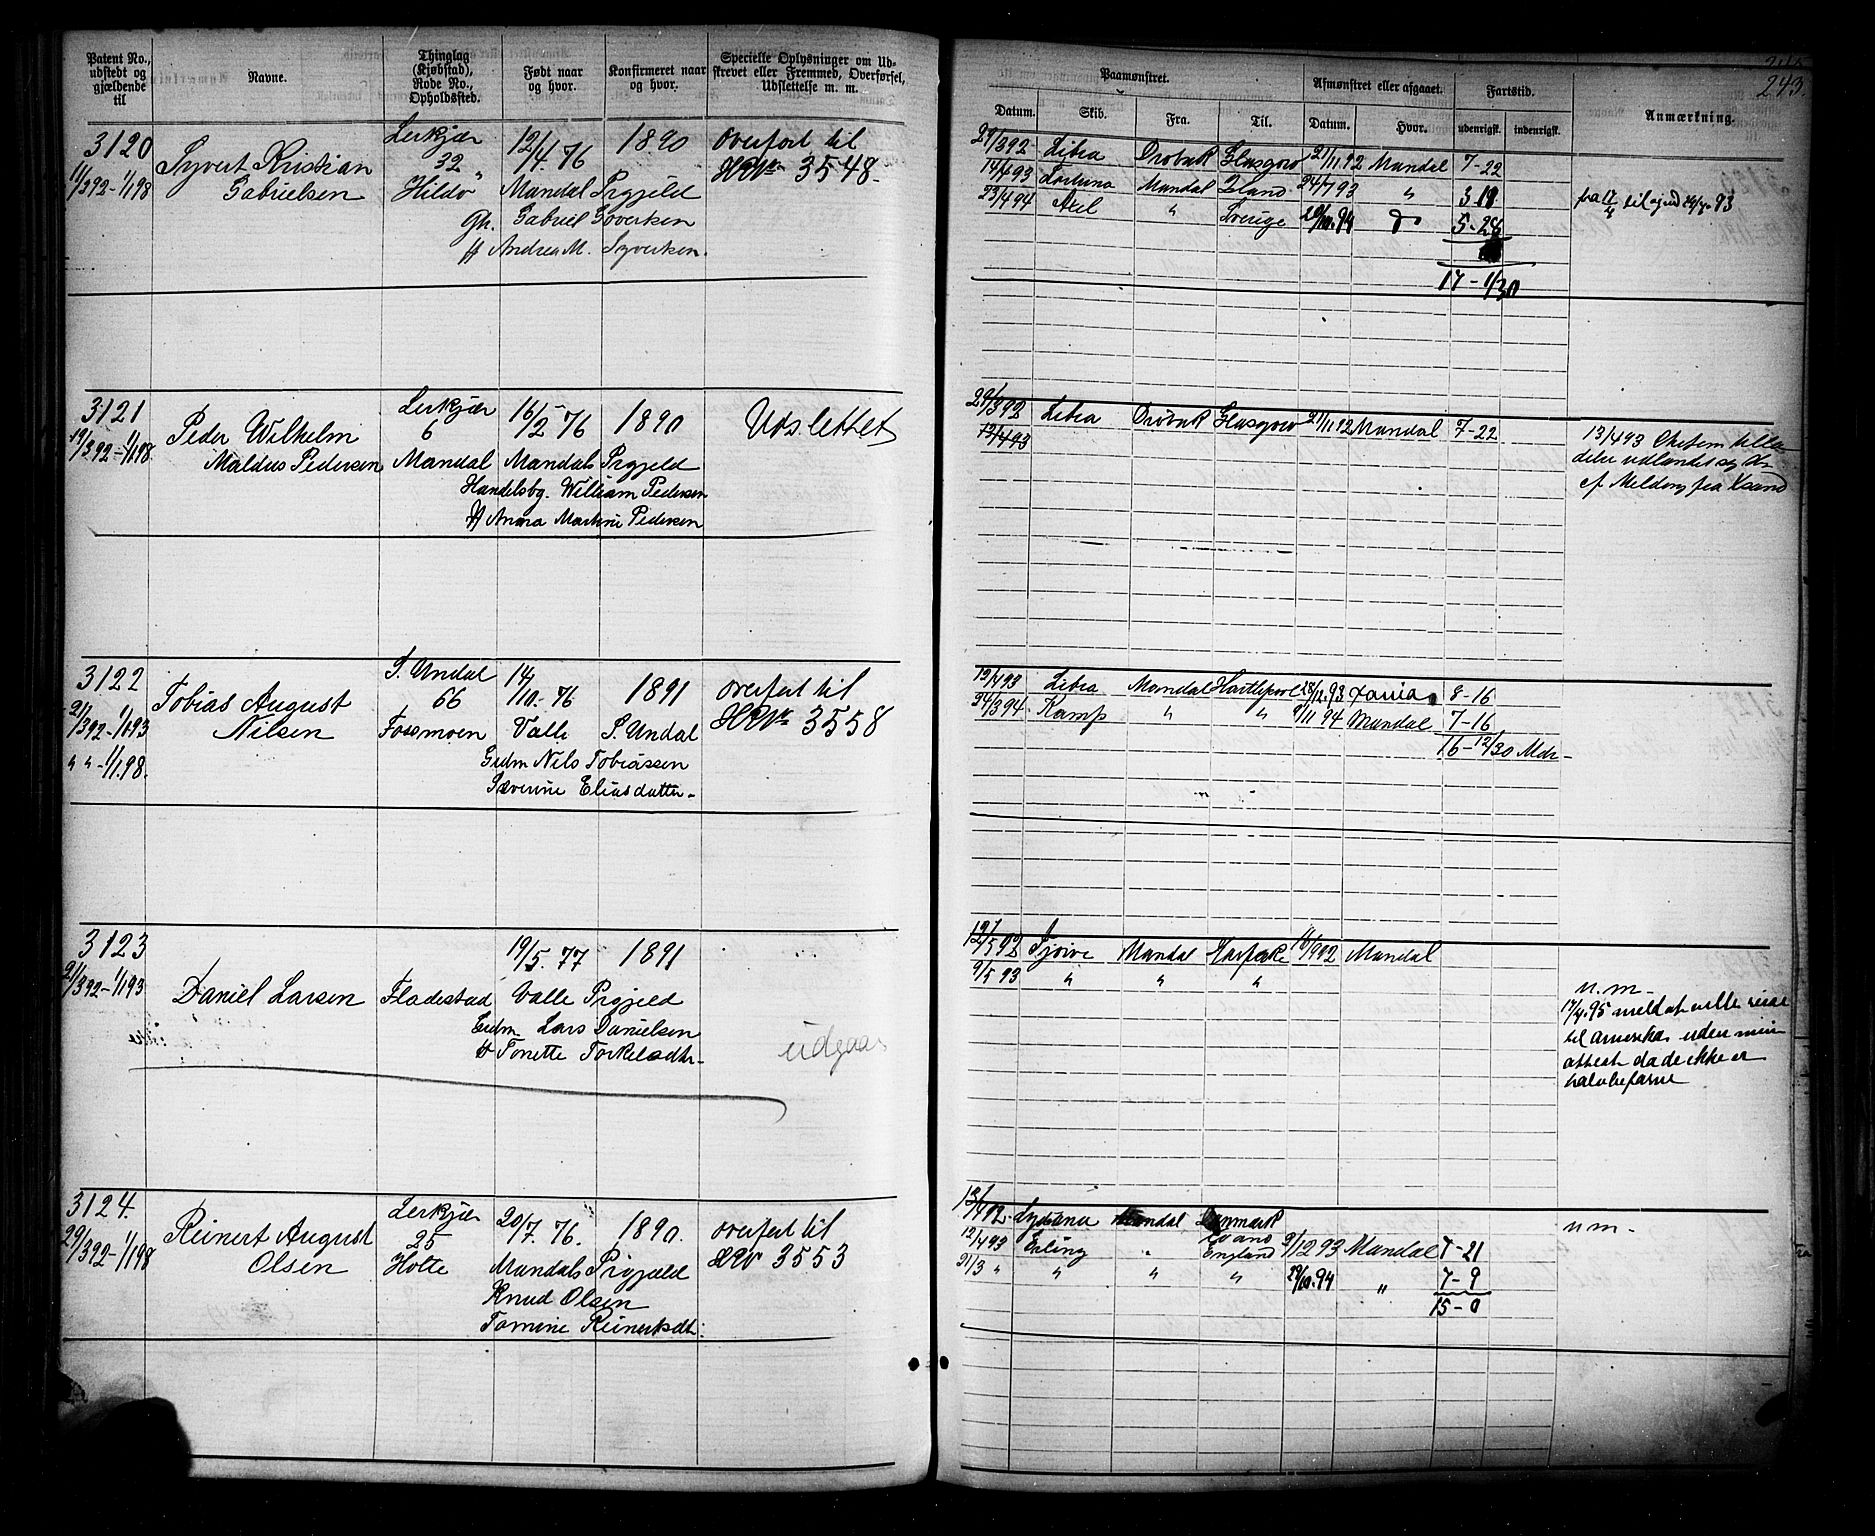 Patent No., udstedt og gjældende til
Navne.
Thinglag (Kjøbstad), Rode No., Opholdssted.
Født naar og hvor.
Konfirmeret naar og hvor.
Specielle Oplysninger om Udstrevet eller Fremmed, Overførsel, Udslettelse m. m.
3120
11/3 92 - 1/1 98
Syvert Kristian
Gabrielsen
Lerkjær
32
Hildø
12/4. 76
1890
Mandal Prgjeld
Gh. Gabriel Syvertsen
H Andrea M. Syvertsen.
overført til
HR No 3548.
3121
19/3 92 - 1/1 98
Peder Wilhelm
Maldus Pedersen
Lerkjær
6
Mandal
16/2 76
1890
Mandals Prgjeld
Handelsbg. William Pedersen
H Anna Martine Pedersen
Udslettet
3122
21/3 92 - 1/1 93
" " - 1/1 98.
Tobias August
Nilsen
S. Undal
66
Fossmoen
14/10. 76
1891
Valle S. Undal
Grdm Nils Tobiassen
Severine Eliasdatter -
overført til
HR No 3558
3123
21/3 92 - 1/1 93
Daniel Larsen
Fladestad
19/5. 77
1891
Valle Prgjeld
Grdm. Lars Danielsen
H Tonette Torkelsdtr -
udgaar
3124.
29/3 92 - 1/1 98
Reinert August
Olsen
Lerkjær
25
Holte
20/7. 76.
1890.
Mandals Prgjæld
Knud Olsen
Tomine Reinertsdtr.
overført til
HR No 3553
243.
Paamønstret.
Afmønstret eller afgaaet.
Fartstid.
Anmærkning.
Datum. Skib. Fra. Til. Datum. Hvor. udenrigsk. indenrigsk.
29/3 92 Libra Drøbak Glasgow 21/11 92 Mandal 7-22
14/4 93 Mandal 24/7 93 "
23/4 94 " Sverige 94 5-28
17 - 1/30
29/3 92 Libra Drøbak Glasgow 21/11 92 Mandal 7-22
13/4 93
13/4 93
Melding fra Ksand
13/4 93 Libra Mandal Hartlepool 28/12. 93 8-16
24/3 94 Kamp " " 9/11 94 Mandal 7-16
16 - 12/30 Mdr -
12/5 92 Mandal 16/9 92 Mandal
9/5 93 " " "
n.m -
17/4. 95
til amerika uden min
attest da de ikke er
Mandal Danmark
12/4 93 Erling " England 9/12 93 Mandal 7-21
21/3 " " " " 29/10. 94 " 7-9
15-0
n m -